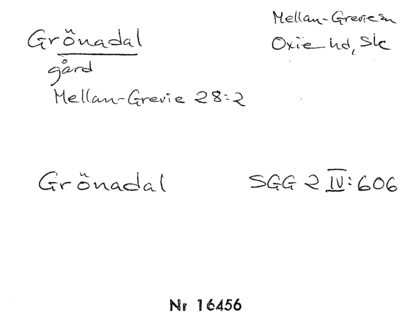 Grönadal
gård
Mellan-Grevie 28:2
Mellan-Grevie sn
Oxie hd, Sk
Grönadal
SGG 2 IV:606
Nr 16456